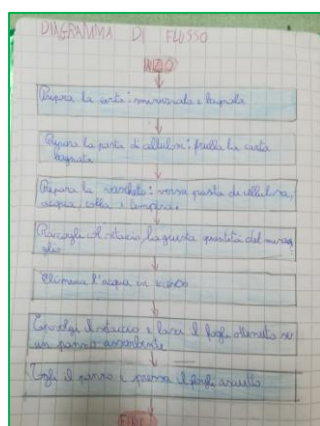 DIAGRAMMA DI FLUSSO
INIZIO
Prepara la carta: sminuzzala e bagnala
Prepara la pasta di cellulosa: frulla la carta
bagnata
Prepara la vaschetta: versa pasta di cellulosa,
acqua, colla e tempera.
Raccogli col setaccio la giusta quantità del
Elimina l'acqua in eccesso
il setaccio e lascia il foglio ottenuto su
un panno assorbente
Togli il panno e pressa il foglio asciutto
FINE